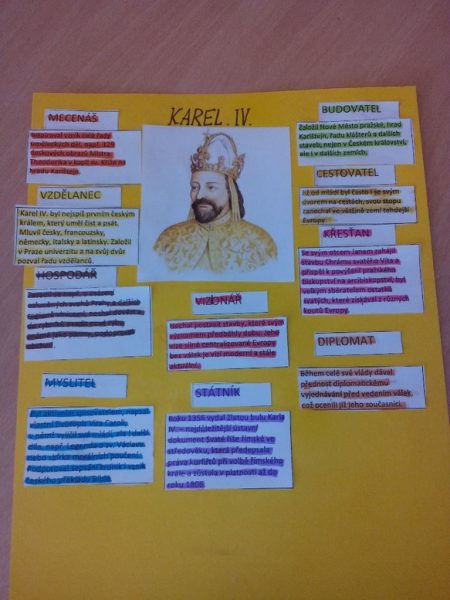 KAREL.IV.
MECENÁŠ
Inspiroval vznik celé řady
uměleckých děl, např. 129
deskových obrazů Mistra
Theodorika v kapli sv. Kříže na
hradu Karlštejn.
VZDĚLANEC
Karel IV. byl nejspíš prvním českým
králem, který uměl číst a psát.
Mluvil česky, francouzsky,
německy, italsky a latinsky. Založil
v Praze univerzitu a na svůj dvůr
pozval řadu vzdělanců.
HOSPODÁŘ
MYSLITEL
Byl aktivním spisovatelem, napsal
vlastní životopis Vita Caroli,
např. Legendu o sv. Václavu
Podporoval sepsání kronik i vznik
českého překladu Bible.
VIZIONÁŘ
Nechal postavit stavby, které svým
významem předběhly dobu. Jeho
vize silné centralizované Evropy
bez válek je vizí moderní a stále
aktuální.
STÁTNÍK
Roku 1356 vydal Zlatou bulu Karla
IV. – nejdůležitější ústavní
dokument Svaté říše římské ve
středověku, která předepsala
práva kurfiřtů při volbě římského
krále a zůstala v platnosti až do
roku 1806.
BUDOVATEL
Založil Nové Město pražské, hrad
Karlštejn, řadu klášterů a dalších
staveb, nejen v Českém království,
ale i v dalších zemích.
CESTOVATEL
Již od mládí byl často i se svým
dvorem na cestách, svou stopu
zanechal ve většině zemí tehdejší
Evropy.
KŘESŤAN
Se svým otcem Janem zahájil
stavbu Chrámu svatého Víta a
přispěl k povýšení pražského
biskupství na arcibiskupství, byl
velkým sběratelem ostatků
svatých, které získával z různých
koutů Evropy.
DIPLOMAT
Během celé své vlády dával
přednost diplomatickému
vyjednávání před vedením válek,
což ocenili již jeho současníci.